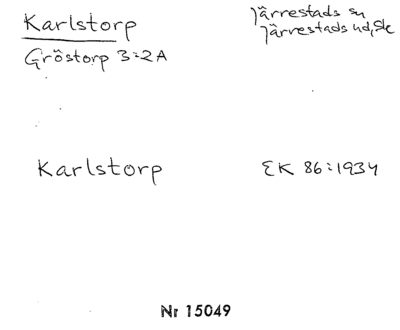 Karlstorp
Järrestads sn
Gröstorp 3:2A
Järrestads hd, Sk
Karlstorp
EK 86:1934
Nr 15049